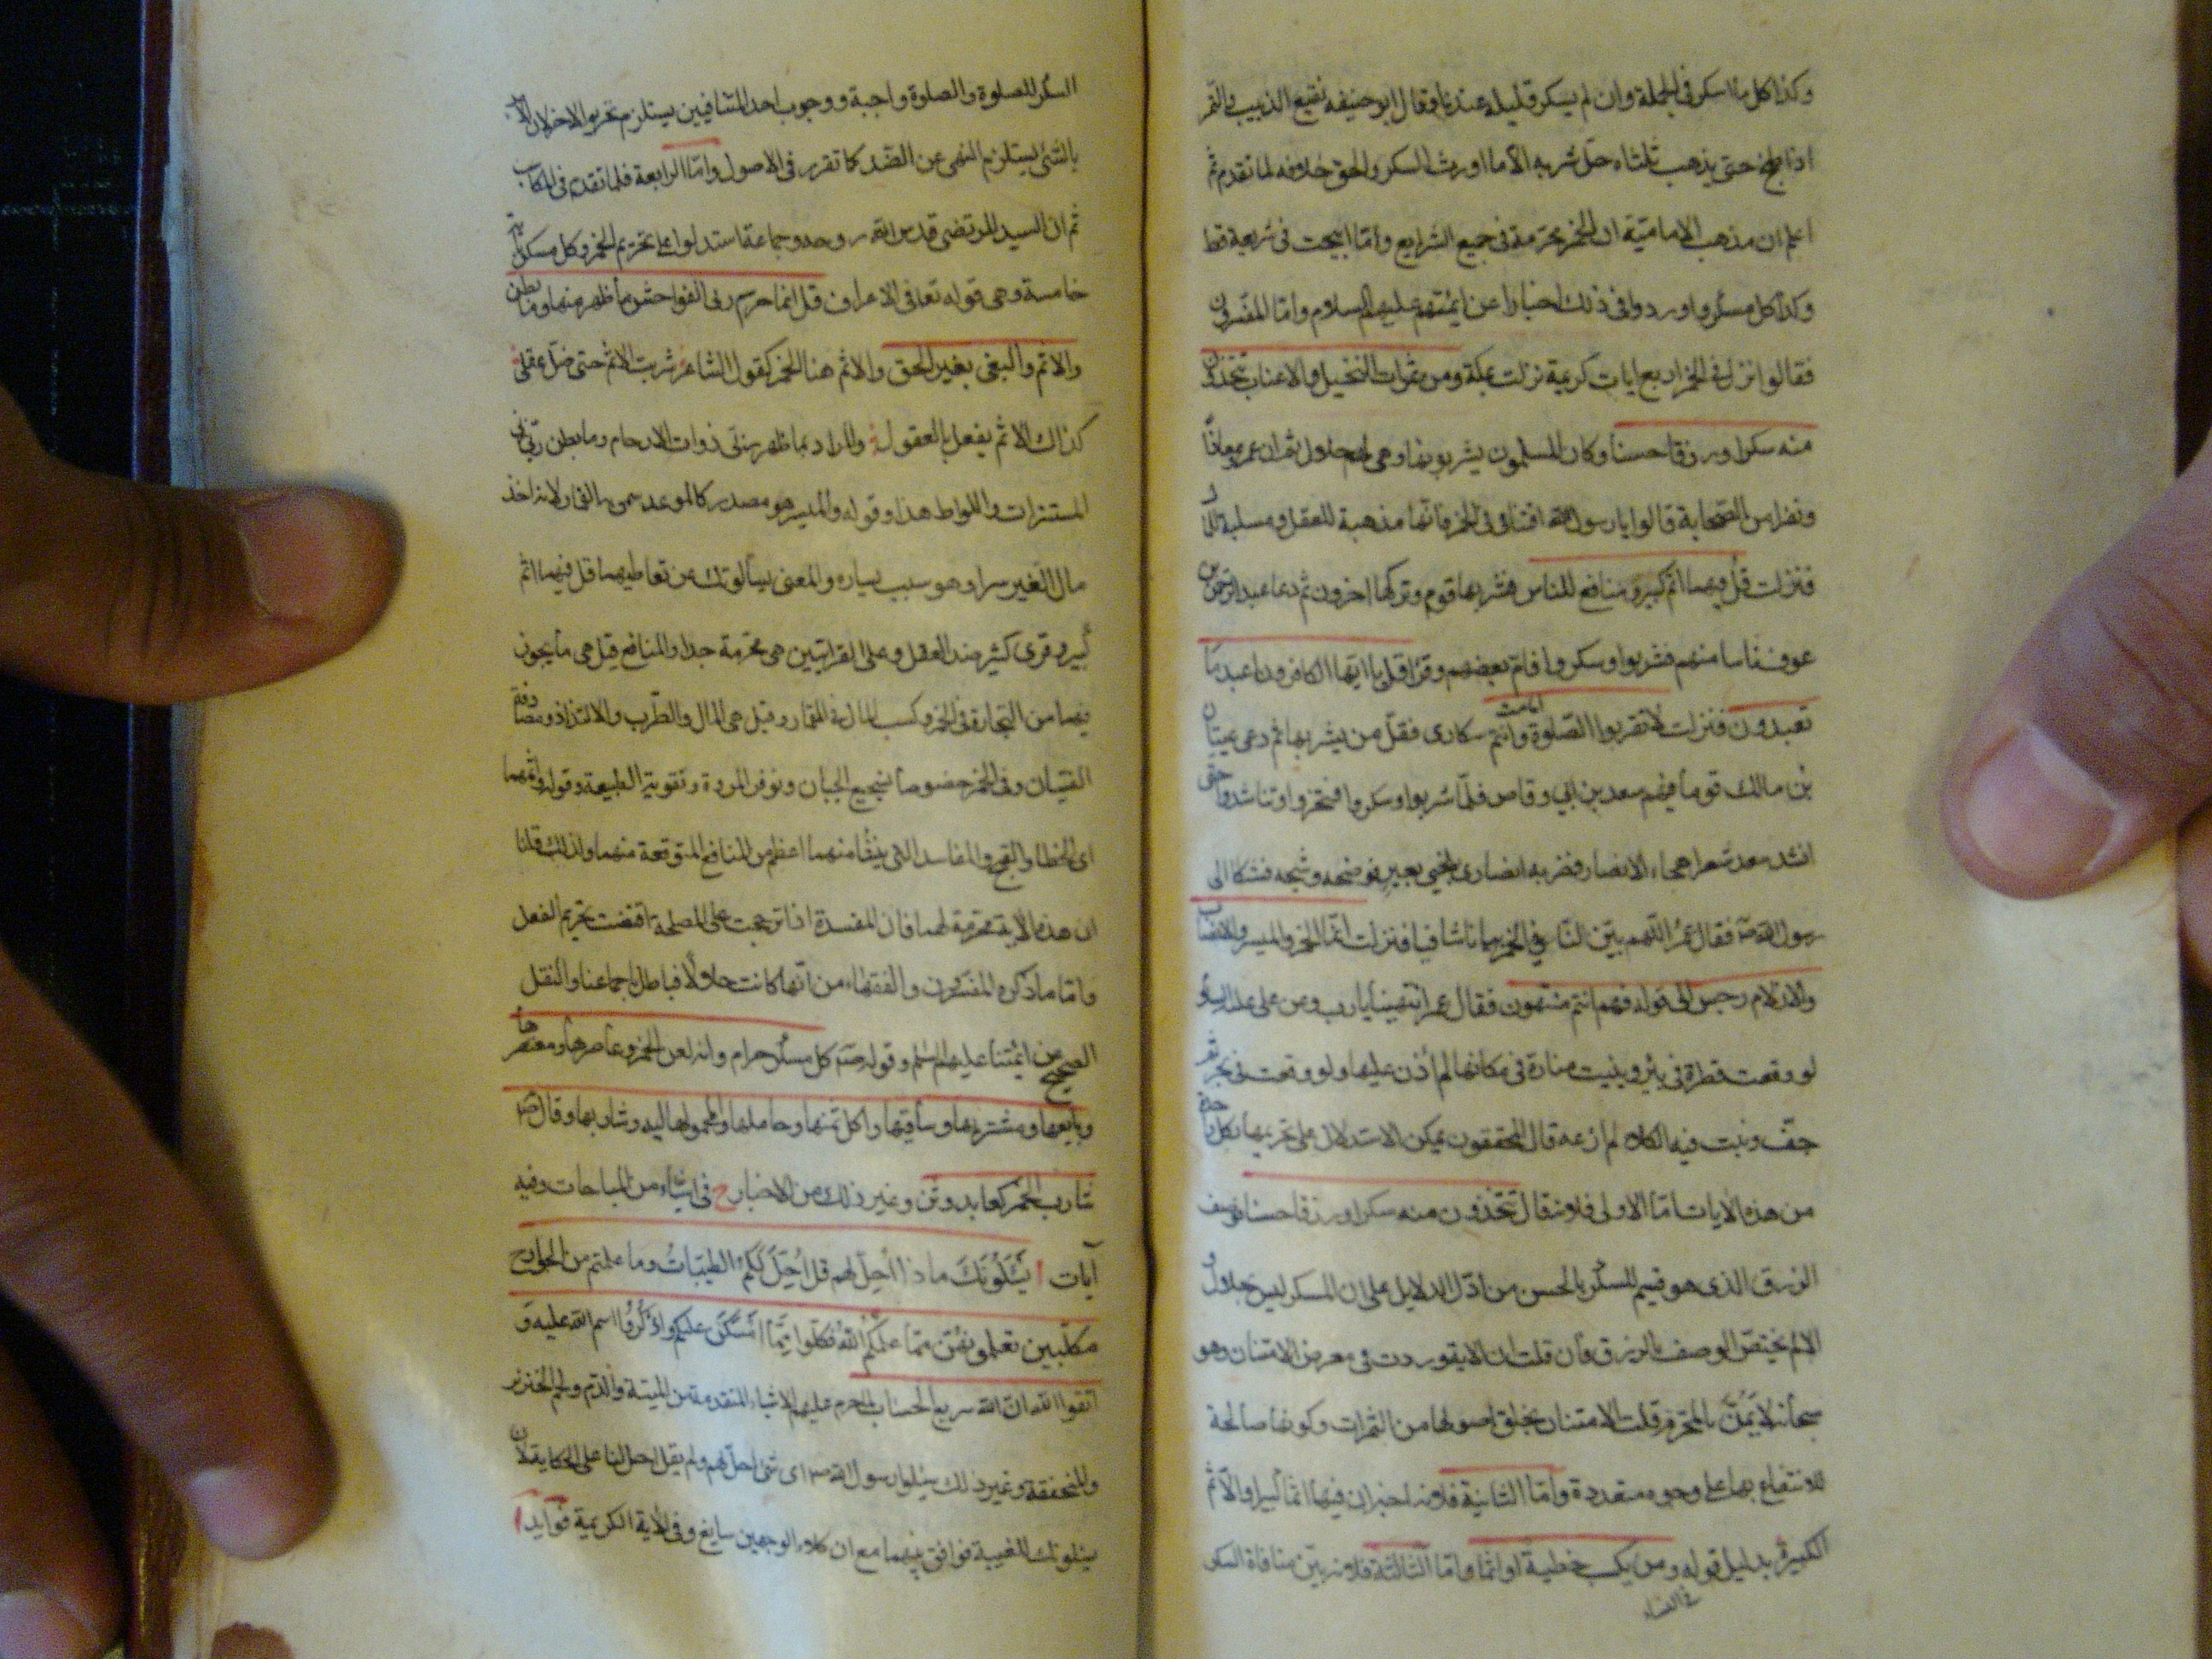 وكذا كل ما اسكر فى الجملة وان لم يسكر قليله عندنا وقال ابو حنيفه نقيع الزبيب والتمر
اذا طبخ حتى يذهب ثلثاه حل شربه الا ما اورث السكر والحق خلافه لما تقدم ثم
اعلم ان مذهب الامامية ان الخمر محرمة فى جميع الشرايع وما ابيحت فى شريعة قط
وكذا كل مسكر واوردوا فى ذلك اخبارا عن ائمتهم عليهم السلام واما المفسرون
فقالوا نزل فى الخمر اربع ايات كريمة نزلت بمكة ومن ثمرات النخيل والاعناب تتخذون
منه سكرا ورزقا حسنا وكان المسلمون يشربونها وهى لهم حلال ثم ان عمر ومعاذا
ونفرا من الصحابة قالوا يا رسول الله افتنا فى الخمر فانها مذهبة للعقل ومسلبة للمال
فنزلت قل فيهما اثم كبير ومنافع للناس فشربها قوم وتركها اخرون ثم دعا عبد الرحمن بن
عوف ناسا منهم فشربوا وسكروا فامّ بعضهم وقرا قل يا ايها الكافرون اعبد ما
تعبدون فنزلت لا تقربوا الصلوة وانتم سكارى فقل من يشربها ثم دعى عتبان
بن مالك قوما فيهم سعد بن ابي وقاص فلما شربوا وسكروا افتخروا وتناشدوا حتى
انشد سعد شعرا هجاء الانصار فضربه انصارى بلحيي بعير فوضحه وشجه فشكا الى
رسول الله صم فقال عمر اللهم بين لنا فى الخمر بيانا شافيا فنزلت انما الخمر والميسر والانصاب
والازلام رجس الى قوله فهل انتم منتهون فقال عمر انتهينا يا رب وعن على عليه السلم
لو وقعت قطرة فى بئر وبنيت منارة فى مكانها لم اذن عليها ولو وقعت فى بحر ثم
جف ونبت فيه الكلاء لم ارعه قال المحققون يمكن الاستدلال على تحريمها بكل واحدة
من هذه الايات اما الاولى فلانه قال تتخذون منه سكرا ورزقا حسنا فوصف
الرزق الذى هو قسيم للسكر بالحسن من ادل الدلايل على ان المسكر ليس حلالا و
الا لم يختص الوصف بالرزق وان قلت ان الاية وردت فى معرض الامتنان وهو
سبحانه لا يمن بالمحرم قلت الامتنان بخلق اصولها من الثمرات وكونها صالحة
للانتفاع بها على وجوه متعددة واما الثانية فلانه اخبر ان فيها اثما كبيرا والاثم
الكبيرة بدليل قوله ومن يكسب خطيئة او اثما واما الثالثة فلانه بين منافاة السكر
فى النساء
السكر للصلوة والصلوة واجبة ووجوب احد المتنافيين يستلزم تحريم الاخر لان الامر
بالشئ يستلزم النهى عن الضد كما تقرر فى الاصول واما الرابعة فلما تقدم فى المكاسب
ثم ان السيد المرتضى قدس الله روحه وجماعة استدلوا على تحريم الخمر وكل مسكر باية
خامسة وهى قوله تعا فى الاعراف قل انما حرم ربى الفواحش ما ظهر منها وما بطن
والاثم والبغى بغير الحق والاثم هنا الخمر كقول الشاعر شربت الاثم حتى ضل عقلى
كذاك الاثم يفعل بالعقول والمراد بما ظهر زنى ذوات الارحام وما بطن زنى
المستترات واللواط هذا وقوله والميسر هو مصدر كالموعد سمى به القمار لانه اخذ
مال الغير سرا وهو سبب يساره والمعنى يسألونك عن تعاطيهما قل فيهما اثم
كبير وقرى كثير ضد العقل وعلى القراتين هى محرمة جدا والمنافع قيل هى ما يجون
فيهما من التجارة فى الخمر وكسب المال فى القمار وقيل هى المال والطرب والالتذاذ ومصادقة
الفتيان وفى الخمر خصوصا تشجيع الجبان وتوفر المروة وتقوية الطبيعة وقوله واثمهما
اى الخطا والقبح والمفاسد التى ينشا منهما اعظم من المنافع المتوقعة منهما ولذلك قلنا
ان هذه الاية محرمة لهما فان المفسدة اذا ترجحت على المصلحة اقتضت تحريم الفعل
واما ما ذكره المفسرون والفقهاء من انها كانت حلالا فباطل باجماعنا والنقل
الصحيح عن ائمتنا عليهم السلم وقوله صم كل مسكر حرام وانه لعن الخمر وعاصرها ومعتصرها
وبايعها ومشتريها وساقيها واكل ثمنها وحاملها والمحمولها اليه وشاربها وقال صم
شارب الخمر كعابد وثن وغير ذلك من الاخبار ح فى اشياء من المباحات وفيه
آيات ا يسئلونك ماذا احل لهم قل احل لكم الطيبات وما علمتم من الجوارح
مكلبين تعلمونهن مما علمكم الله فكلوا مما امسكن عليكم واذكروا اسم الله عليه و
اتقوا الله ان الله سريع الحساب لما حرم عليهم الاشياء المتقدمة من الميتة والدم ولحم الخنزير
والمنخنقة وغير ذلك سئلوا رسول الله ص اى شئ احل لهم ولم يقل احل لنا على الحكاية لان
يسئلونك للغيبة فوافق بينهما مع ان كلا الوجهين سايغ وفى الاية الكريمة فوايد ا